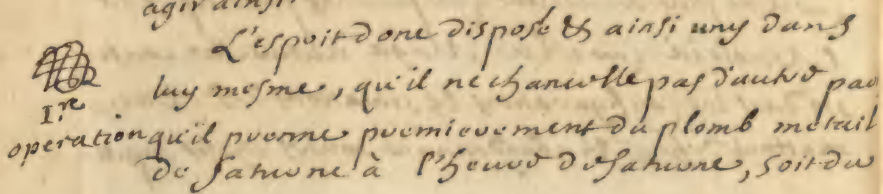 agir ainsi.
L'espoit donc disposé & ainsi uny dans
luy mesme, qu'il ne chancelle pas d'autre par
I.re
operation qu'il prenne premierement du plomb metail
de saturne à l'heure de saturne, soit du